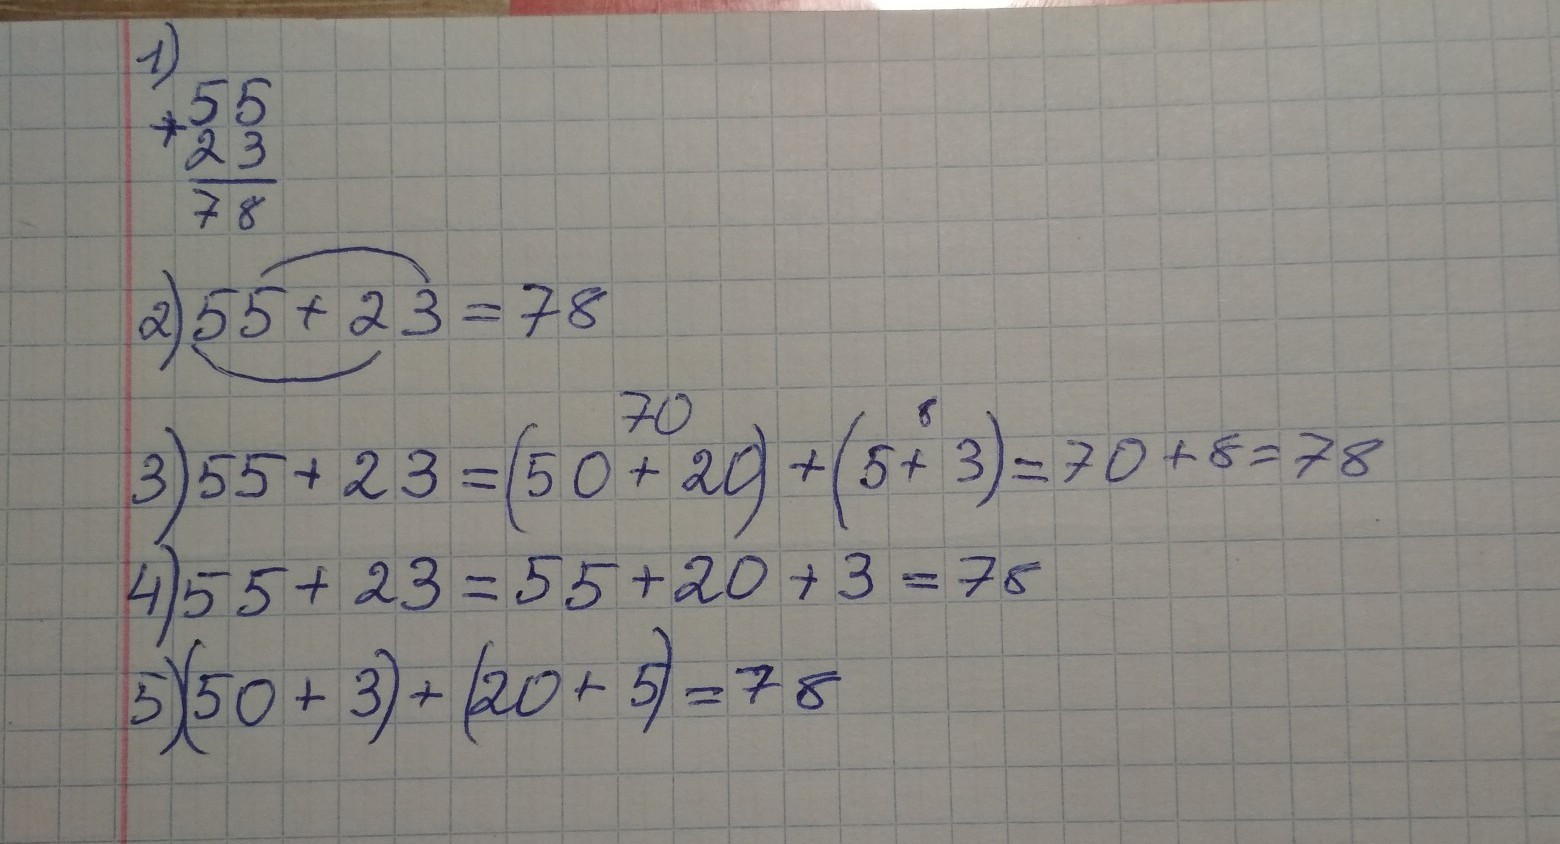 1)
55
+
23
78
2) 55 + 23 = 78
70 8
3) 55 + 23 = (50 + 20) + (5 + 3) = 70 + 8 = 78
4) 55 + 23 = 55 + 20 + 3 = 78
5) (50 + 3) + (20 + 5) = 78